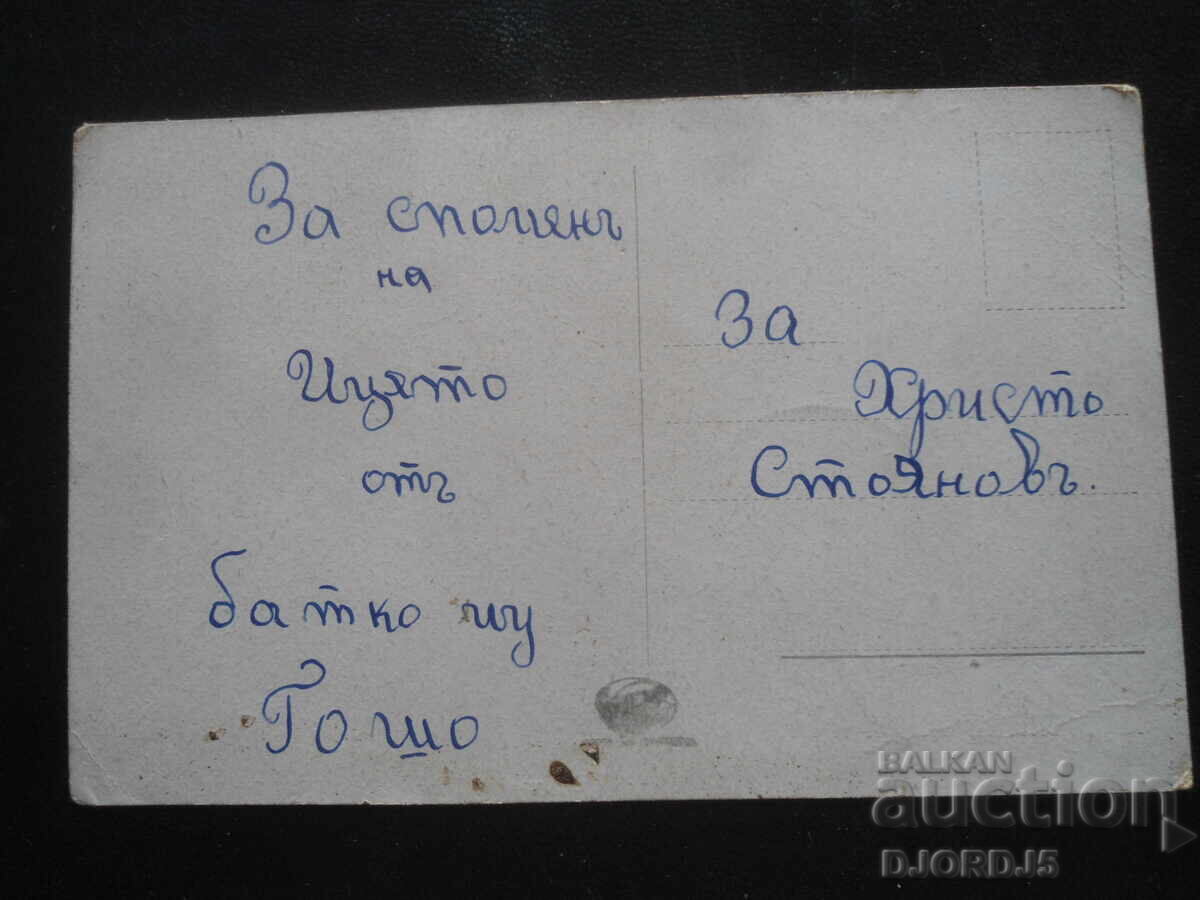 За споменъ
на
Ицято
отъ
батко му
Гошо
За
Христо
Стояновъ.
BALKAN
auction
DJORDJ5